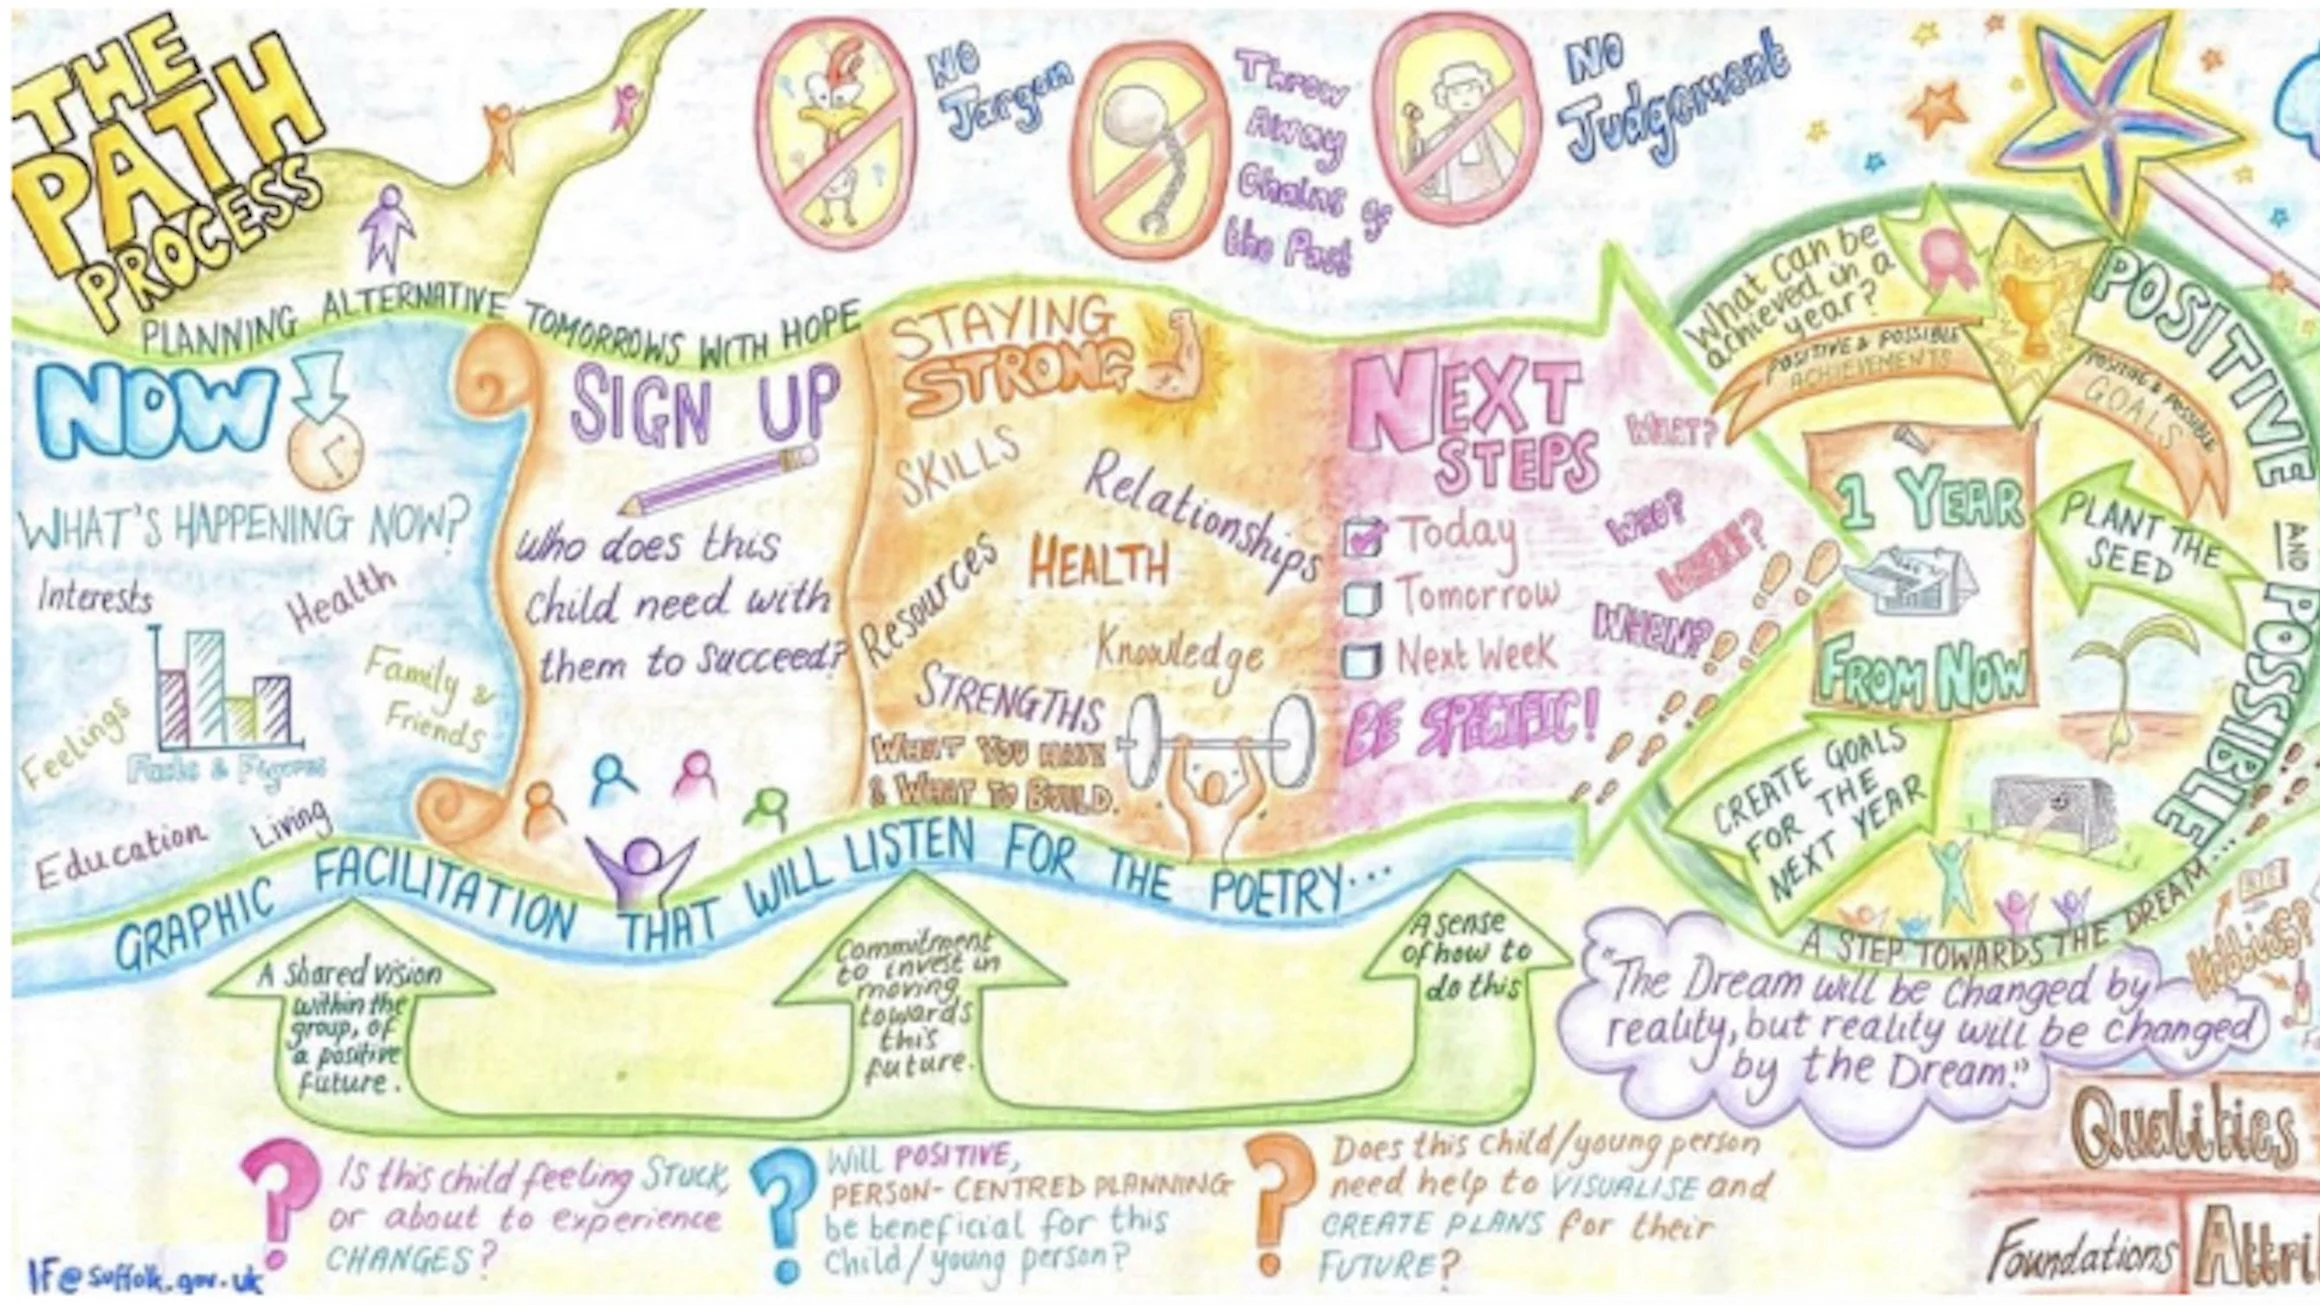 THE
PATH
PROCESS
PLANNING ALTERNATIVE TOMORROWS WITH HOPE
NO
Jargon
Throw
Away
Chains of
the Past
NO
Judgement
NOW
WHAT'S HAPPENING NOW?
Interests
Health
Family &
Friends
Feelings
Facts & Figures
Education
Living
SIGN UP
Who does this
child need with
them to succeed?
STAYING
STRONG
SKILLS
Relationships
HEALTH
Resources
Knowledge
STRENGTHS
WHAT YOU HAVE
& WHAT TO BUILD.
NEXT
STEPS
WHAT?
WHO?
WHERE?
WHEN?
Today
Tomorrow
Next Week
BE SPECIFIC!
What can be
achieved in a
year?
POSITIVE & POSSIBLE
ACHIEVEMENTS
POSITIVE & POSSIBLE
GOALS
POSITIVE
AND
POSSIBLE
1 YEAR
FROM NOW
PLANT THE
SEED
CREATE GOALS
FOR THE
NEXT YEAR
A STEP TOWARDS THE DREAM...
GRAPHIC FACILITATION THAT WILL LISTEN FOR THE POETRY...
A shared vision
within the
group, of
a positive
future.
Commitment
to invest in
moving
towards
this
future.
A sense
of how to
do this
"The Dream will be changed by
reality, but reality will be changed
by the Dream."
Hobbies?
Qualities
Foundations
Attri
Is this child feeling STUCK,
or about to experience
CHANGES?
Will POSITIVE,
PERSON-CENTRED PLANNING
be beneficial for this
Child/young person?
Does this child/young person
need help to VISUALISE and
CREATE PLANS for their
FUTURE?
IF@suffolk.gov.uk